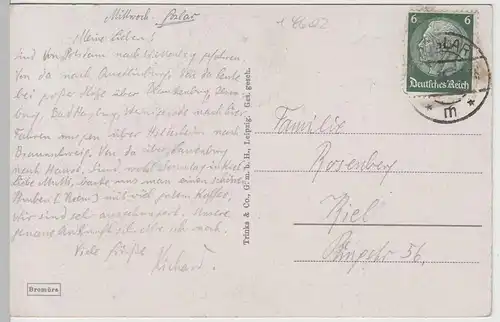 Mittwoch. Goslar
Meine Lieben!
Sind von Potsdam nach Wittenberg gefahren.
Von da nach Quedlinburg. Von da heute
bei großer Hitze über Blankenburg,
burg, Bad Harzburg, nach hier
Fahren morgen über Hildesheim nach
Braunschweig. Von da über Lüneburg
nach Hause. Sind wohl Sonntag in Kiel
liebe Mutti, backe uns man einen schönen
Kuchen mit viel gutem Kaffee,
Wir sind sehr ausgehungert. Unsere
genaue Ankunft schreibe ich noch.
Viele Grüße
Richard.
Bromüra
Trinks & Co., G. m. b. H., Leipzig. Ges. gesch.
6 6
Deutsches Reich
SLAR
* m *
Familie
Rosenberg
Kiel
56.